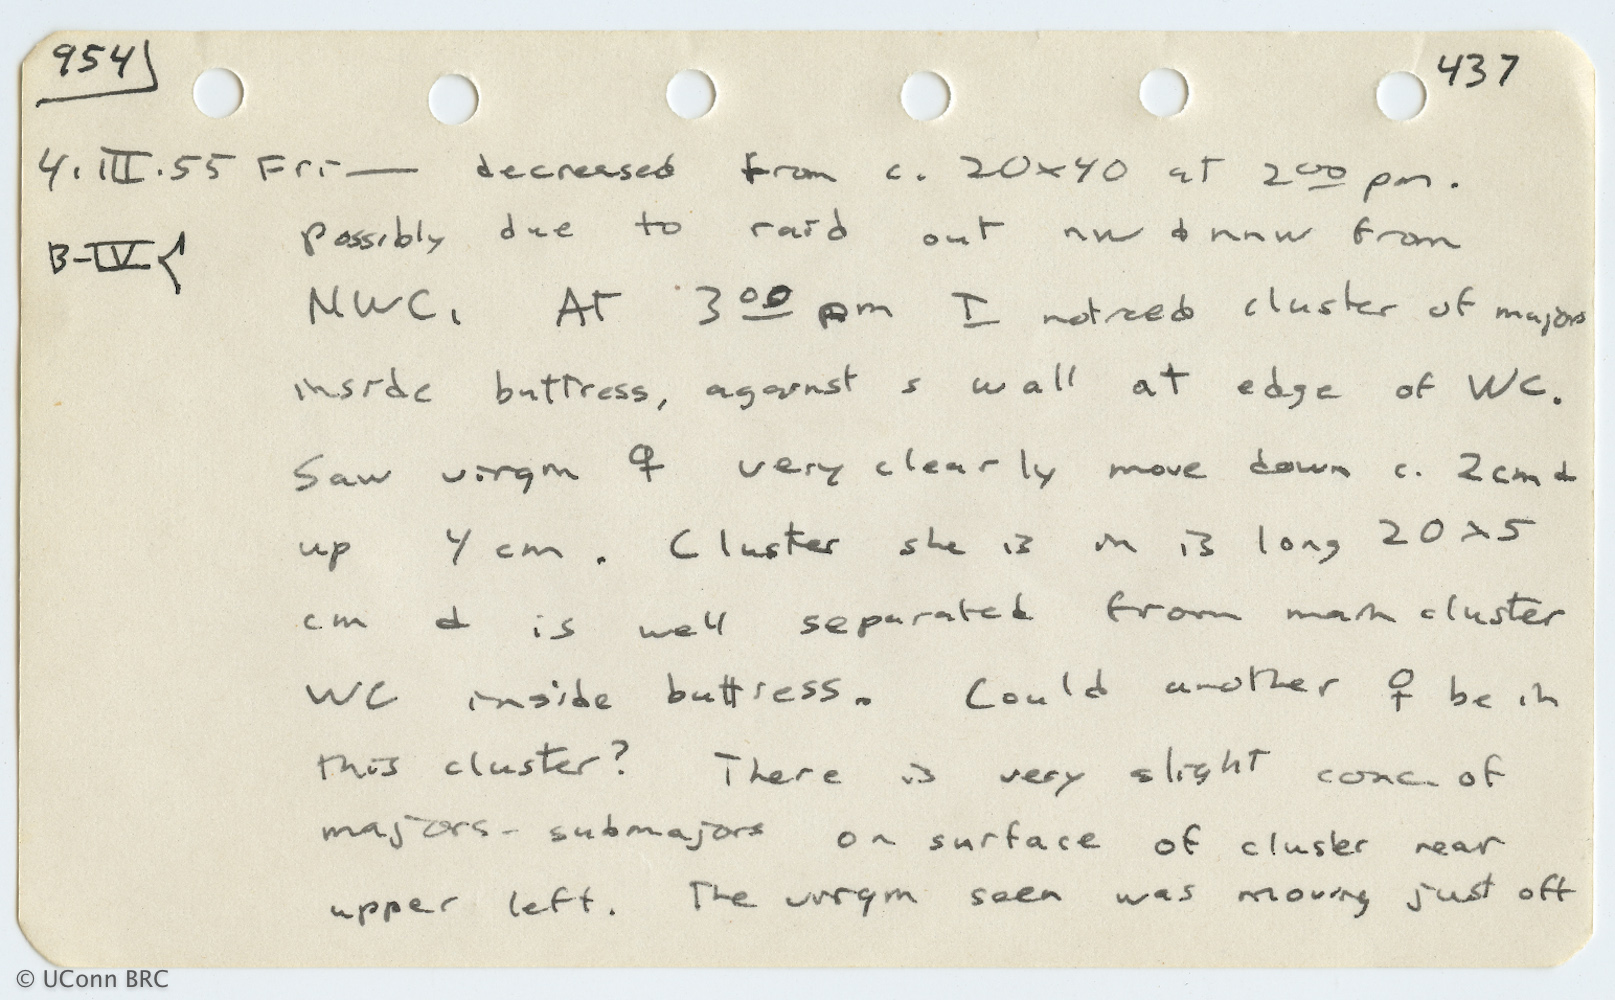 954 437
4.III.55 Fri — decreased from c. 20x40 at 2 00 pm.
B-IV possibly due to raid out nw & nnw from
NWC. At 3 00 pm I noticed cluster of majors
inside buttress, against s wall at edge of WC.
Saw virgin ♀ very clearly move down c. 2cm &
up 4 cm. Cluster she is in is long 20x5
cm & is well separated from main cluster
WC inside buttress. Could another ♀ be in
this cluster? There is very slight conc of
majors-submajors on surface of cluster near
upper left. The virgin seen was moving just off
© UConn BRC